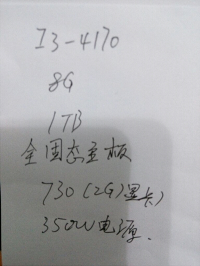 I3-4170
8G
1TB
全固态主板
730(2G)显卡)
350W电源.